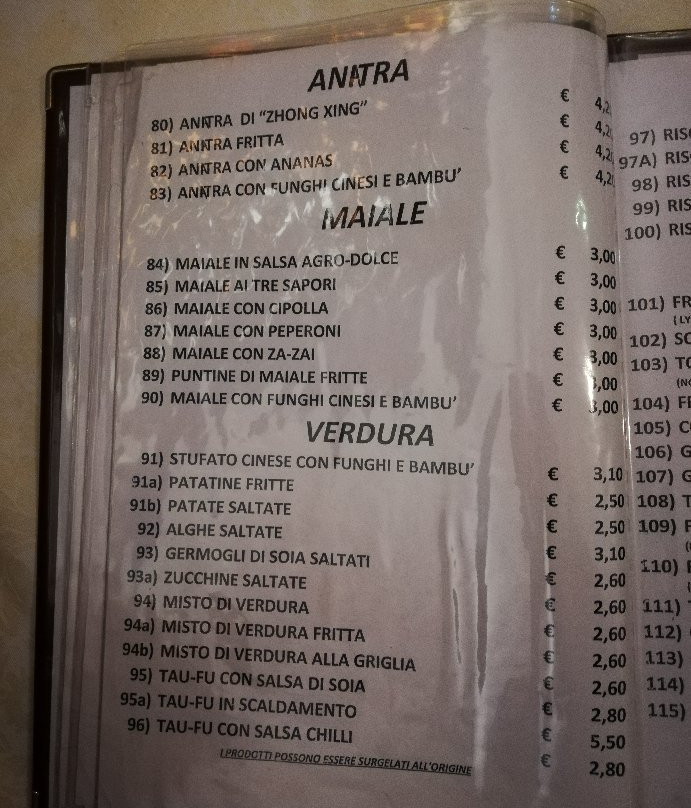 ANITRA
80) ANITRA DI "ZHONG XING" € 4,20
81) ANITRA FRITTA € 4,20
82) ANITRA CON ANANAS € 4,20
83) ANITRA CON FUNGHI CINESI E BAMBU' € 4,20
MAIALE
84) MAIALE IN SALSA AGRO-DOLCE € 3,00
85) MAIALE AI TRE SAPORI € 3,00
86) MAIALE CON CIPOLLA € 3,00
87) MAIALE CON PEPERONI € 3,00
88) MAIALE CON ZA-ZAI € 3,00
89) PUNTINE DI MAIALE FRITTE € 3,00
90) MAIALE CON FUNGHI CINESI E BAMBU' € 3,00
VERDURA
91) STUFATO CINESE CON FUNGHI E BAMBU' € 3,10
91a) PATATINE FRITTE € 2,50
91b) PATATE SALTATE € 2,50
92) ALGHE SALTATE € 3,10
93) GERMOGLI DI SOIA SALTATI € 2,60
93a) ZUCCHINE SALTATE € 2,60
94) MISTO DI VERDURA € 2,60
94a) MISTO DI VERDURA FRITTA € 2,60
94b) MISTO DI VERDURA ALLA GRIGLIA € 2,60
95) TAU-FU CON SALSA DI SOIA € 2,80
95a) TAU-FU IN SCALDAMENTO € 5,50
96) TAU-FU CON SALSA CHILLI € 2,80
I PRODOTTI POSSONO ESSERE SURGELATI ALL'ORIGINE
97) RIS
97A) RIS
98) RIS
99) RIS
100) RIS
101) FR
(LY
102) SC
103) TO
(NO
104) FR
105) C
106) G
107) G
108) T
109)
110)
111)
112)
113)
114)
115)